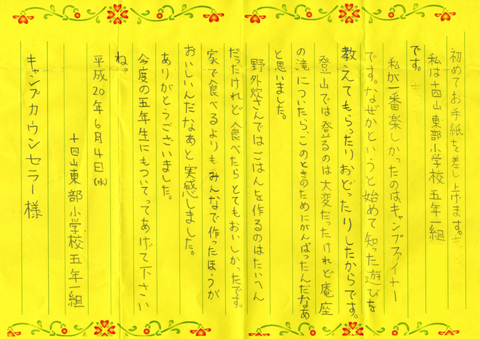 初めてお手紙を差し上げます。
私は十四山東部小学校五年一組
です。
私が一番楽しかったのはキャンプファイヤー
です。なぜかというと始めて知った遊びを
教えてもらったりおどったりしたからです。
登山では登るのは大変だったけれど庵座
の滝についたら、このときのためにがんばったんだなあ
と思いました。
野外炊さんではごはんを作るのはたいへん
だったけれど食べたらとてもおいしかったです。
家で食べるよりもみんなで作ったほうが
おいしいんだなあと実感しました。
ありがとうございました。
今度の五年生にもついてってあげて下さい
ね。
平成20年6月4日(水)
十四山東部小学校五年一組
キャンプカウンセラー様